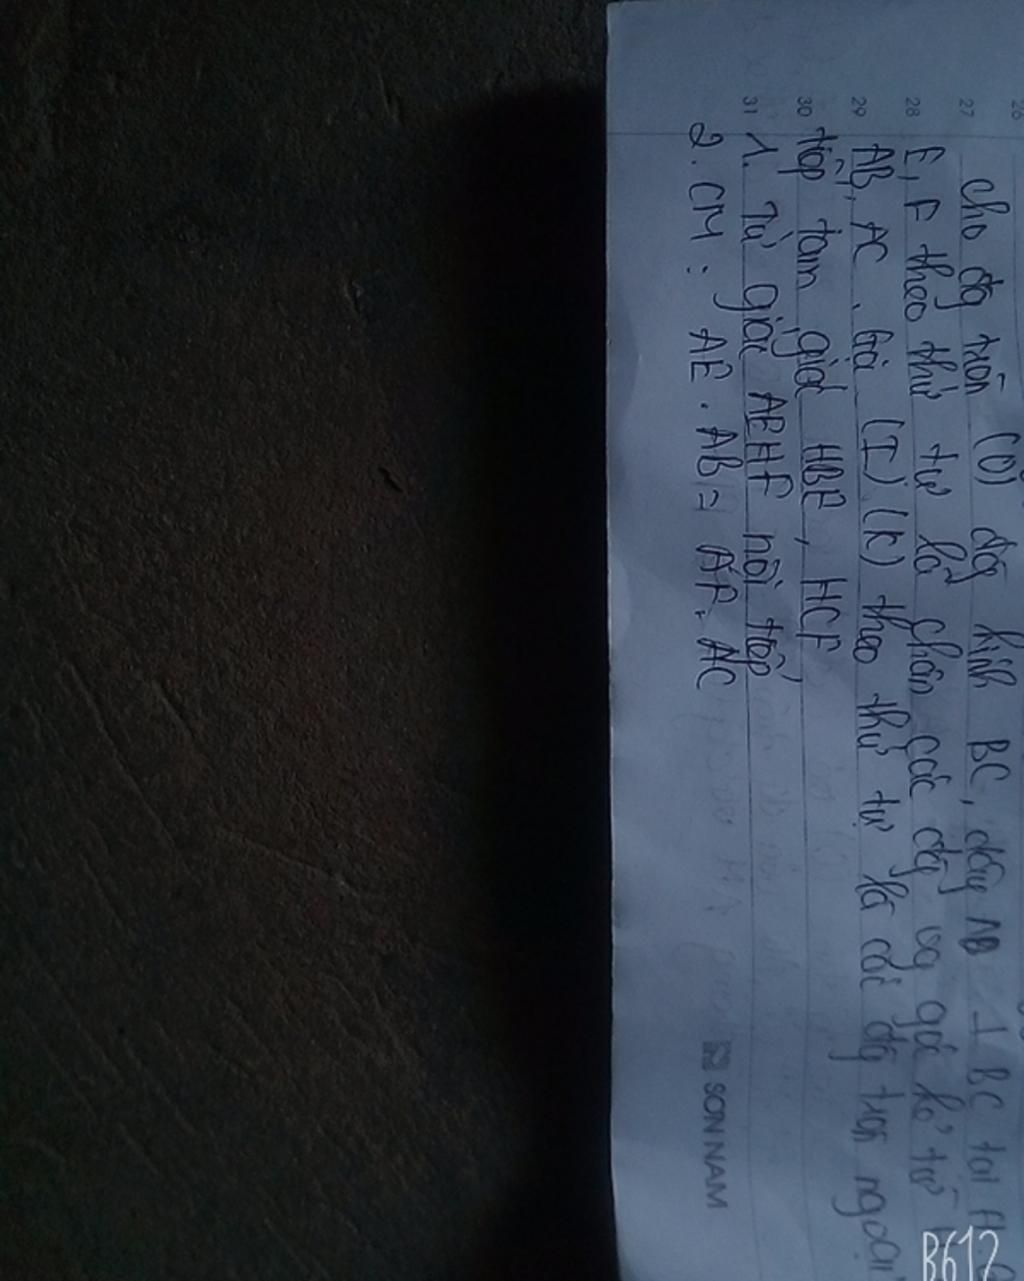 26
27
28
29
30
31
cho đg tròn (O) đg kính BC, dây AD ⊥ BC tại H
E, F theo thứ tự là chân các đg vg góc kẻ từ H
AB, AC. Gọi (I) (K) theo thứ tự là các đg tròn ngoại
tiếp tam giác HBE, HCF
1. Tứ giác AEHF nội tiếp
2. CM: AE. AB = AF. AC
SON NAM
B612